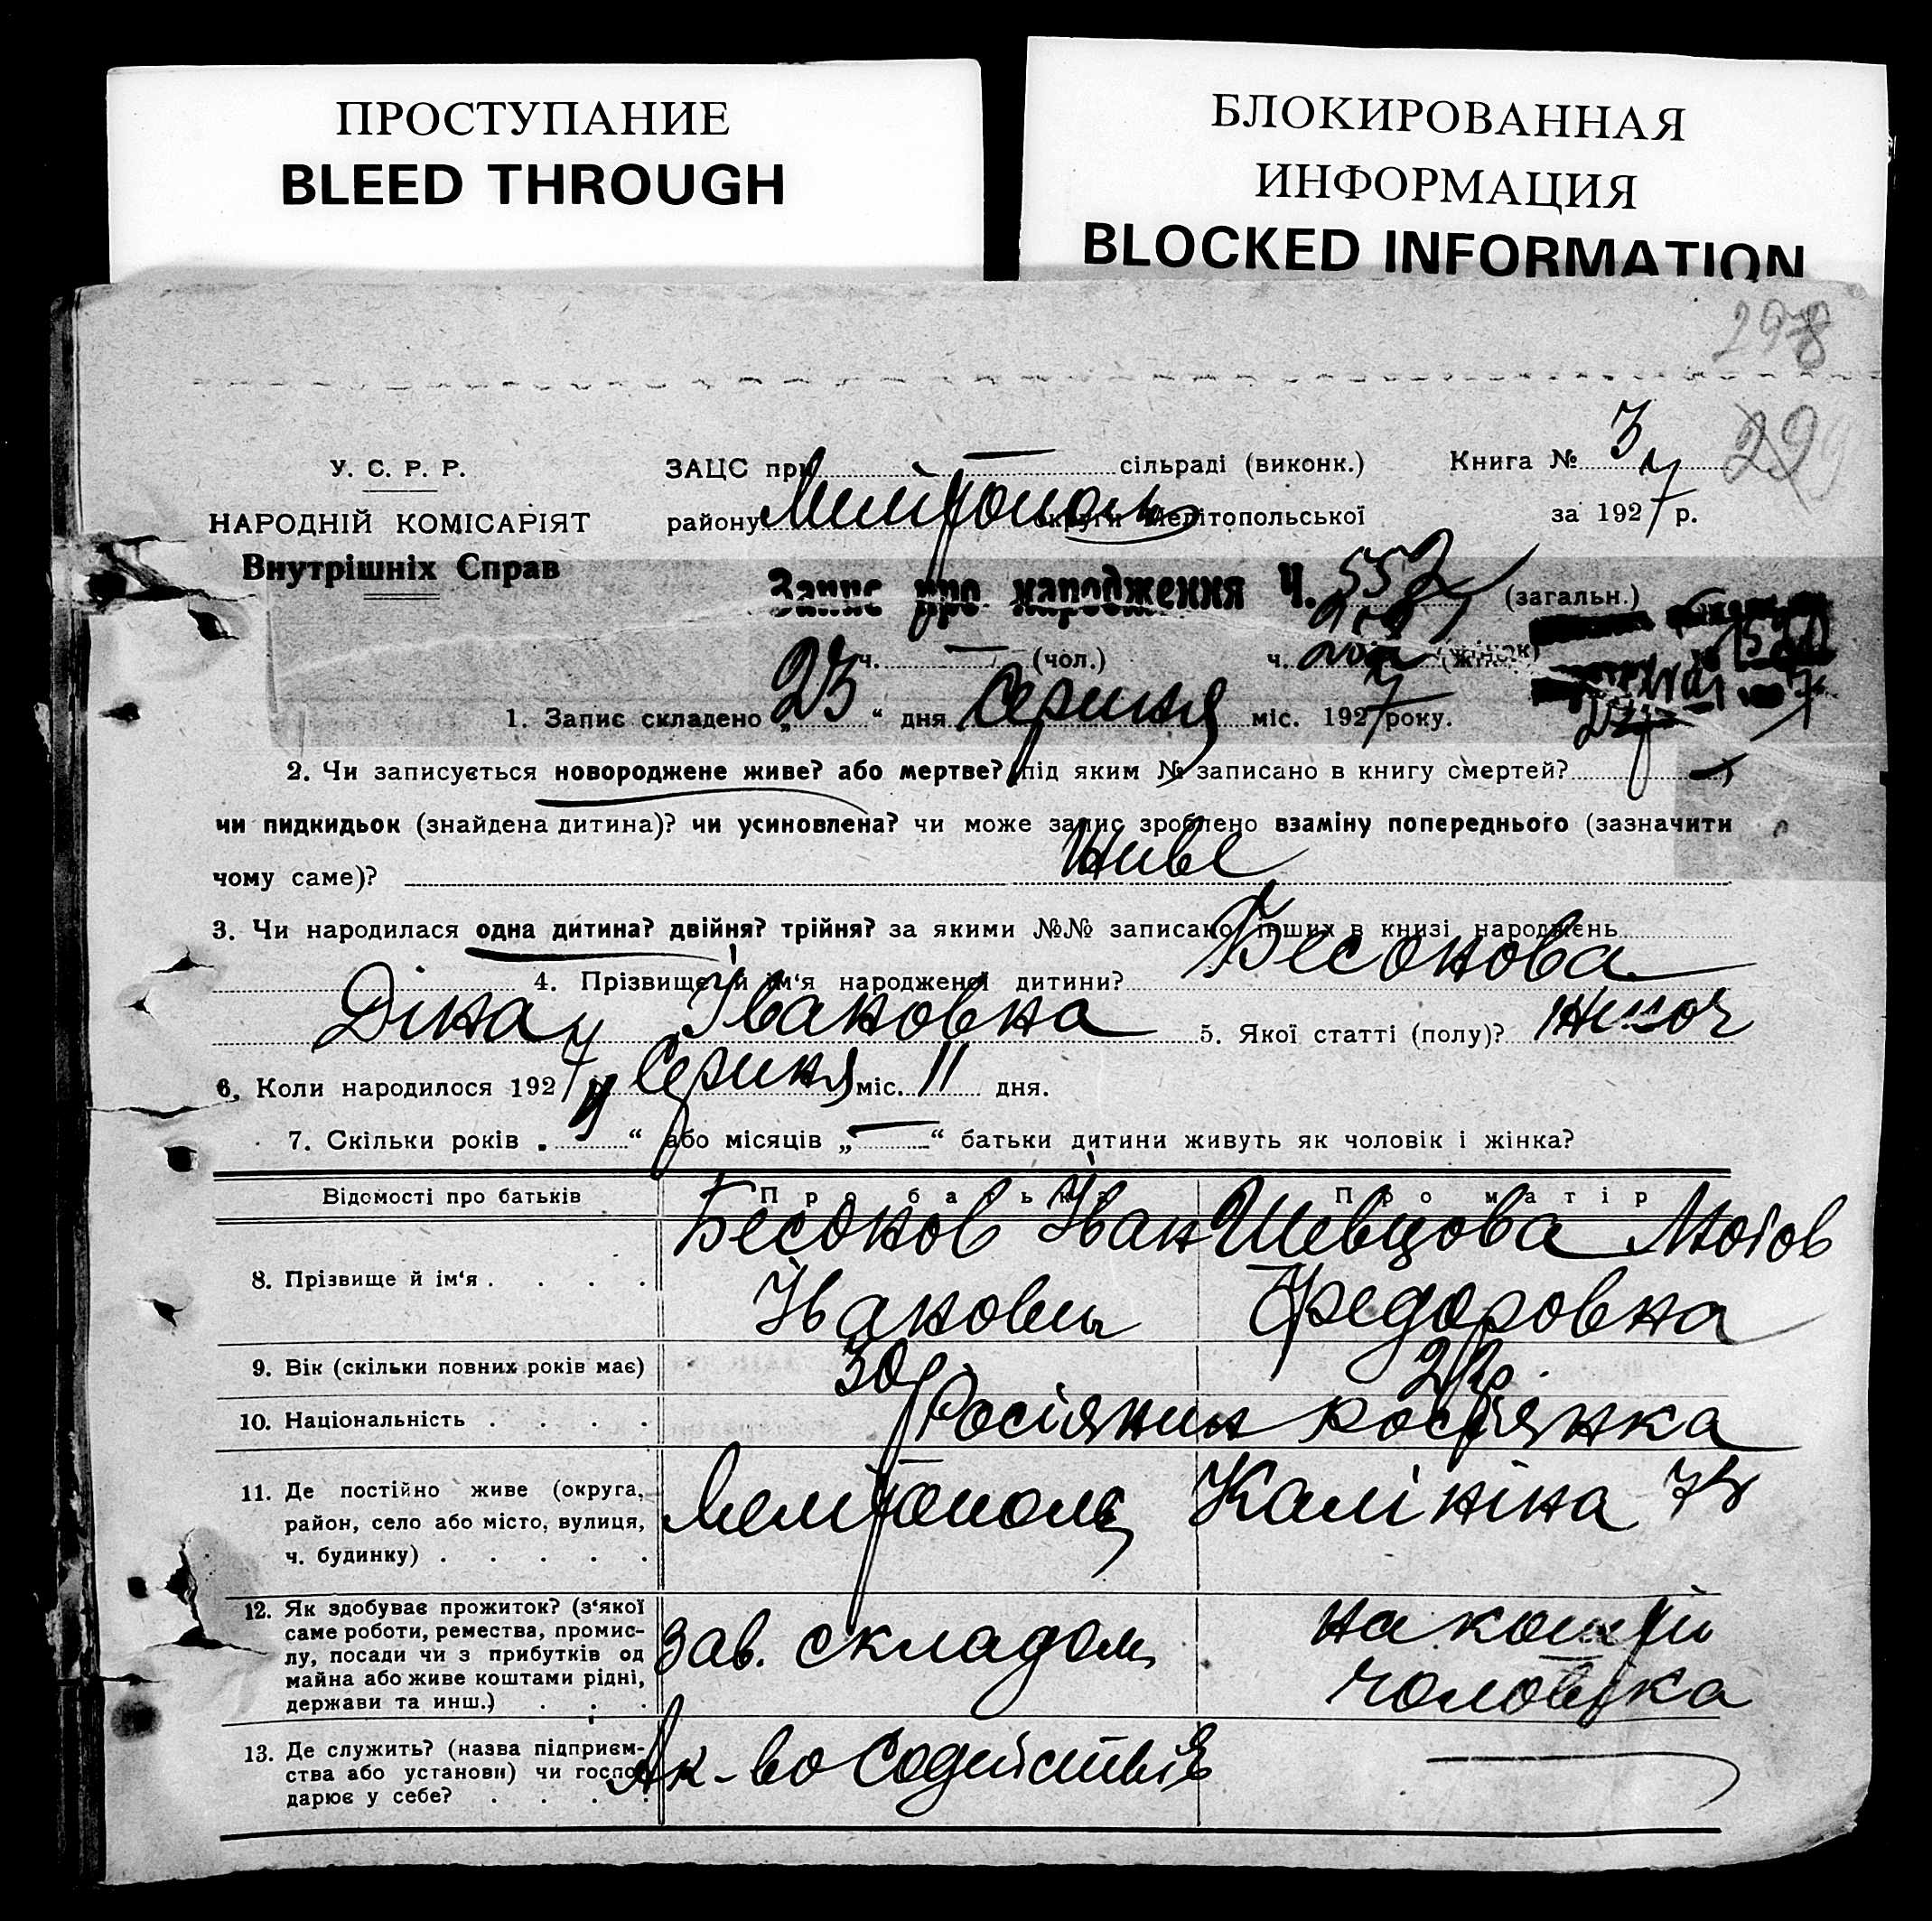 ПРОСТУПАНИЕ
BLEED THROUGH
БЛОКИРОВАННАЯ
ИНФОРМАЦИЯ
BLOCKED INFORMATION
298
У. С. Р. Р.
НАРОДНІЙ КОМІСАРІЯТ
Внутрішніх Справ
ЗАЦС при — сільраді (виконк.)
Книга № 3
району Мелітополь округи Мелітопольської
за 1927 р.
Запис про народження Ч. 552 (загальн.)
ч. — (чол.) ч. (жінок)
1. Запис складено „23“ дня Серпня міс. 1927 року.
2. Чи записується новороджене живе? або мертве? під яким № записано в книгу смертей?
чи пидкидьок (знайдена дитина)? чи усиновлена? чи може запис зроблено взаміну попереднього (зазначити
чому саме)? Живе
3. Чи народилася одна дитина? двійня? трійня? за якими №№ записано інших в книзі народжень
4. Прізвище й ім‘я народженої дитини? Бесонова
Діна Івановна 5. Якої статті (полу)? жіноч
6. Коли народилося 1927 Серпня міс. 11 дня.
7. Скільки років „ “ або місяців „—“ батьки дитини живуть як чоловік і жінка?
Відомості про батьків Про батька Про матір
8. Прізвище й ім‘я . . . . Бесонов Іван Шевцова Любов
Іванович Федоровна
9. Вік (скільки повних років має) 30р
10. Національність . . . . Росіянин росіянка
11. Де постійно живе (округа,
район, село або місто, вулиця,
ч. будинку) . . . . .
Мелітополь Калініна
12. Як здобуває прожиток? (з‘якої
саме роботи, ремества, промис-
лу, посади чи з прибутків од
майна або живе коштами рідні,
держави та инш.) . . .
Зав. складом
на кошти
чоловіка
13. Де служить? (назва підприєм-
ства або установи) чи госпо-
дарює у себе? . . . .
Ак-во Содействія —